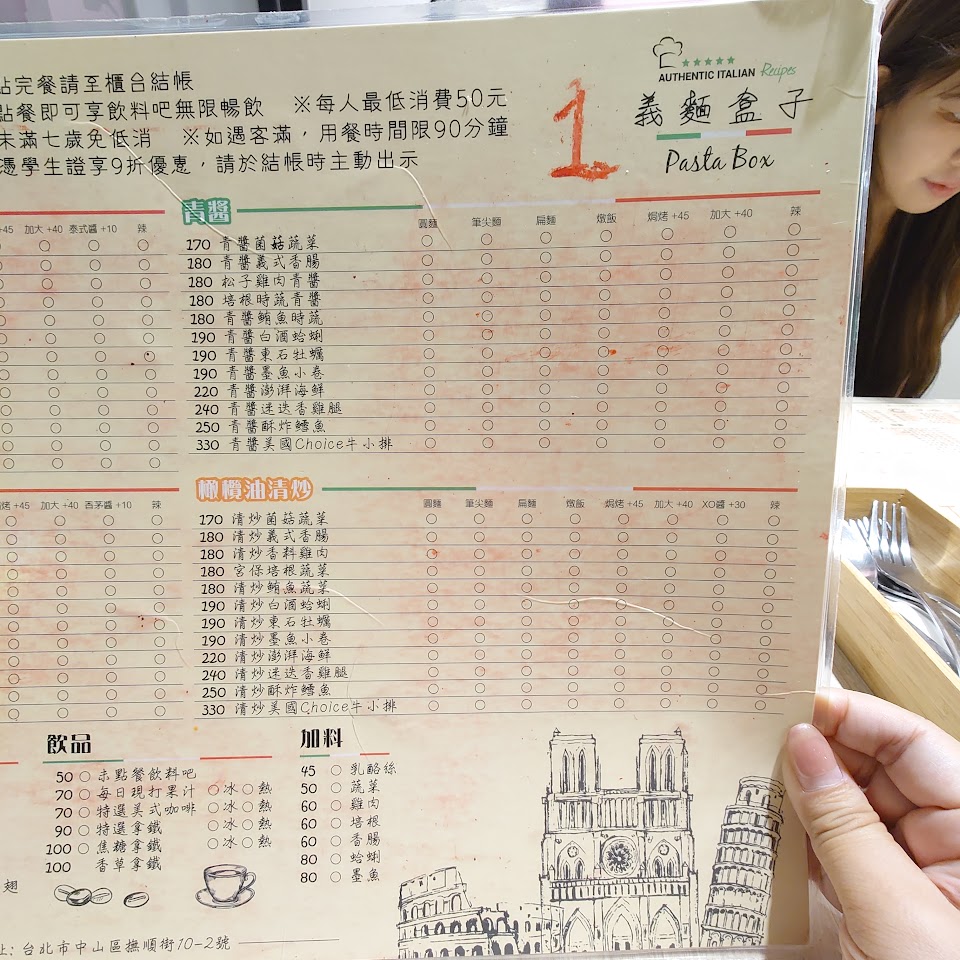 點完餐請至櫃台結帳
點餐即可享飲料吧無限暢飲 ※每人最低消費50元
未滿七歲免低消 ※如遇客滿，用餐時間限90分鐘
憑學生證享9折優惠，請於結帳時主動出示
1
AUTHENTIC ITALIAN Recipes
義麵盒子
Pasta Box
+45 加大 +40 泰式醬 +10 辣
青醬
圓麵 筆尖麵 扁麵 燉飯 焗烤 +45 加大 +40 辣
170 青醬菌菇蔬菜
180 青醬義式香腸
180 松子雞肉青醬
180 培根時蔬青醬
180 青醬鮪魚時蔬
190 青醬白酒蛤蜊
190 青醬東石牡蠣
190 青醬墨魚小卷
220 青醬澎湃海鮮
240 青醬迷迭香雞腿
250 青醬酥炸鱈魚
330 青醬美國Choice牛小排
烤 +45 加大 +40 香茅醬 +10 辣
橄欖油清炒
圓麵 筆尖麵 扁麵 燉飯 焗烤 +45 加大 +40 XO醬 +30 辣
170 清炒菌菇蔬菜
180 清炒義式香腸
180 清炒香料雞肉
180 宮保培根蔬菜
180 清炒鮪魚蔬菜
190 清炒白酒蛤蜊
190 清炒東石牡蠣
190 清炒墨魚小卷
220 清炒澎湃海鮮
240 清炒迷迭香雞腿
250 清炒酥炸鱈魚
330 清炒美國Choice牛小排
飲品
50 未點餐飲料吧
70 每日現打果汁 冰 熱
70 特選美式咖啡 冰 熱
90 特選拿鐵 冰 熱
100 焦糖拿鐵 冰 熱
100 香草拿鐵
加料
45 乳酪絲
50 蔬菜
60 雞肉
60 培根
60 香腸
80 蛤蜊
80 墨魚
翅
址: 台北市中山區撫順街10-2號